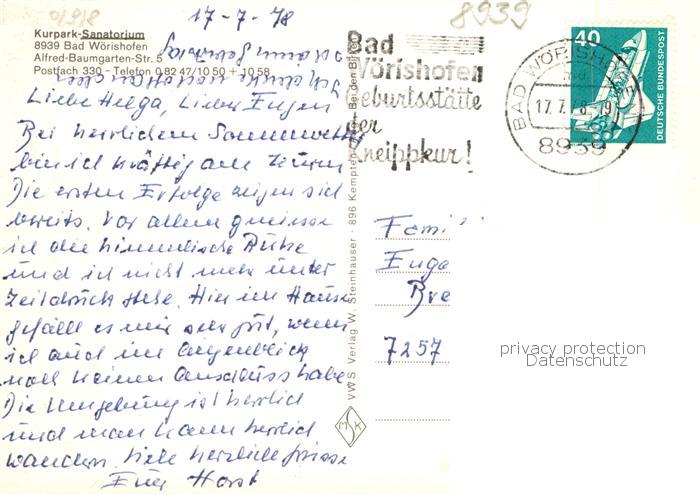 17-7-78
8939
Kurpark-Sanatorium
8939 Bad Wörishofen
Alfred-Baumgarten-Str. 5
Postfach 330 - Telefon 0 82 47/10 50 + 10 58
Liebe Helga, Lieber Eugen
Bei herrlichem Sommerwetter
bin ich kräftig am
Die ersten Erfolge zeigen sich
bereits. Vor allem geniesse
ich die himmlische Ruhe
und ich nicht mehr unter
Zeitdruck stehe. Hier im Hause
gefällt es mir sehr gut, wenn
ich auch im Augenblick
noch keinen Anschluss habe
Die Umgebung ist herrlich
und man kann herrlich
wandern. Viele herzliche Grüsse
Euer Horst
VWS Verlag W. Steinhauser · 896 Kempten
MSK
Bad
Wörishofen
Geburtsstätte
der
Kneippkur!
BAD WÖRISHOFEN
17.7.78
8939
40
DEUTSCHE BUNDESPOST
Fami
Euge
Bre
7257
privacy protection
Datenschutz